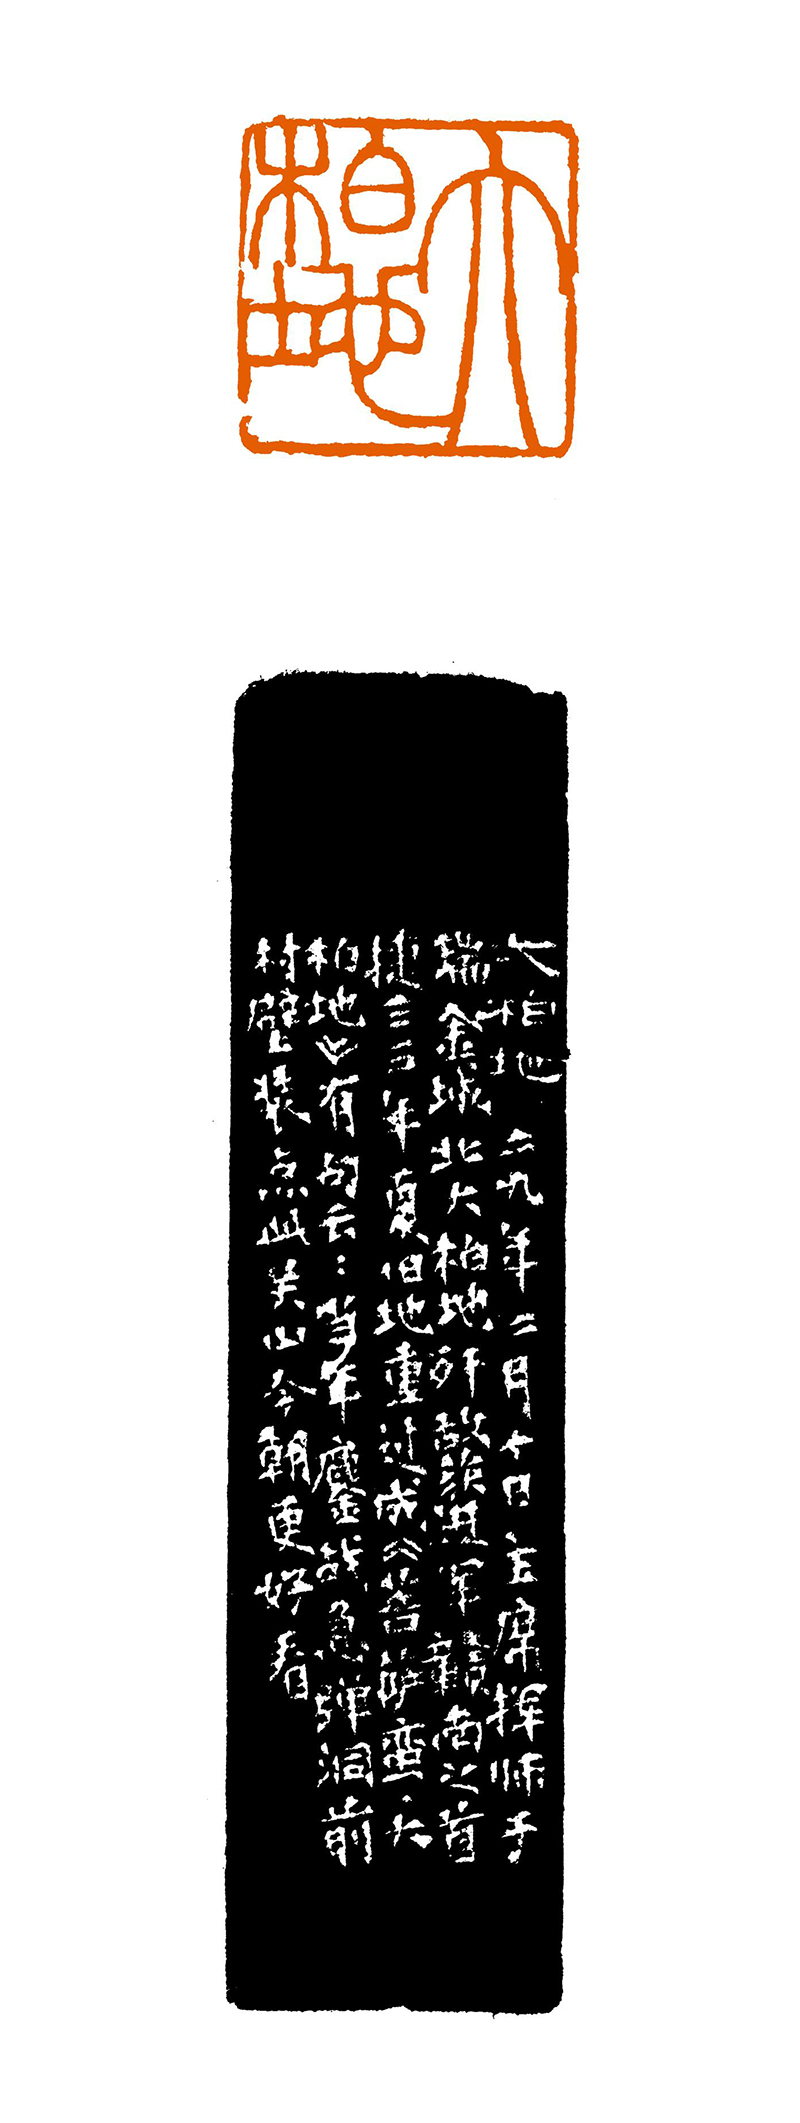 大柏地
大柏地 二九年二月十日主席挥师于
瑞金城北大柏地歼敌获进军赣南之首
捷三三年夏旧地重过成《菩萨蛮·大
柏地》有句云：当年鏖战急弹洞前
村壁装点此关山今朝更好看